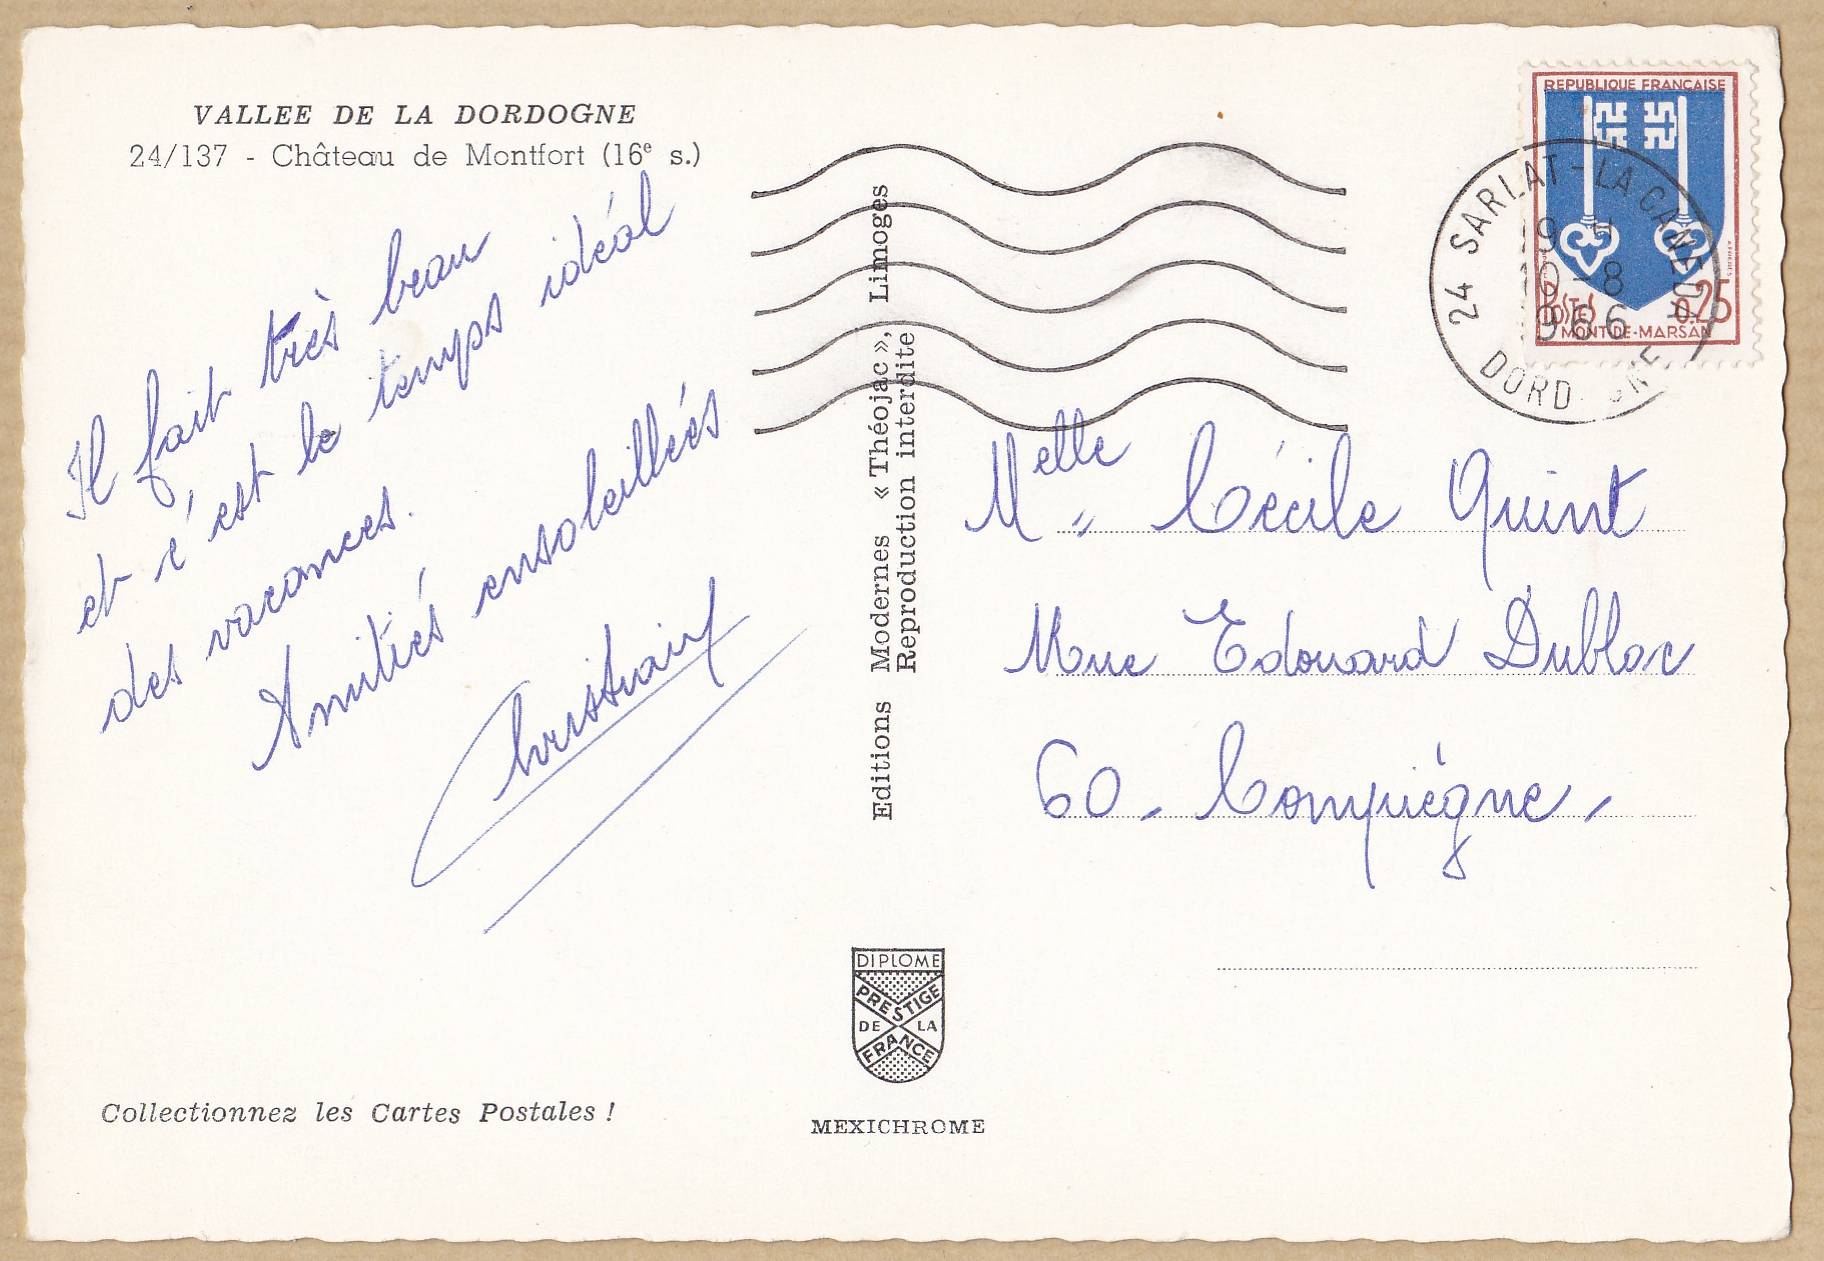 VALLEE DE LA DORDOGNE
24/137 - Château de Montfort (16e s.)
Il fait très beau
et c'est le temps idéal
des vacances.
Amitiés ensoleillées
Editions Modernes « Théojac », Limoges
Reproduction interdite
REPUBLIQUE FRANÇAISE
POSTES
0,25
MONT-DE-MARSAN
24 SARLAT-LA CANEDA
10-8
1966
Melle Cécile Quint
Rue Edouard Dubloc
60 - Compiègne -
DIPLOME
PRESTIGE
DE LA
FRANCE
Collectionnez les Cartes Postales !
MEXICHROME